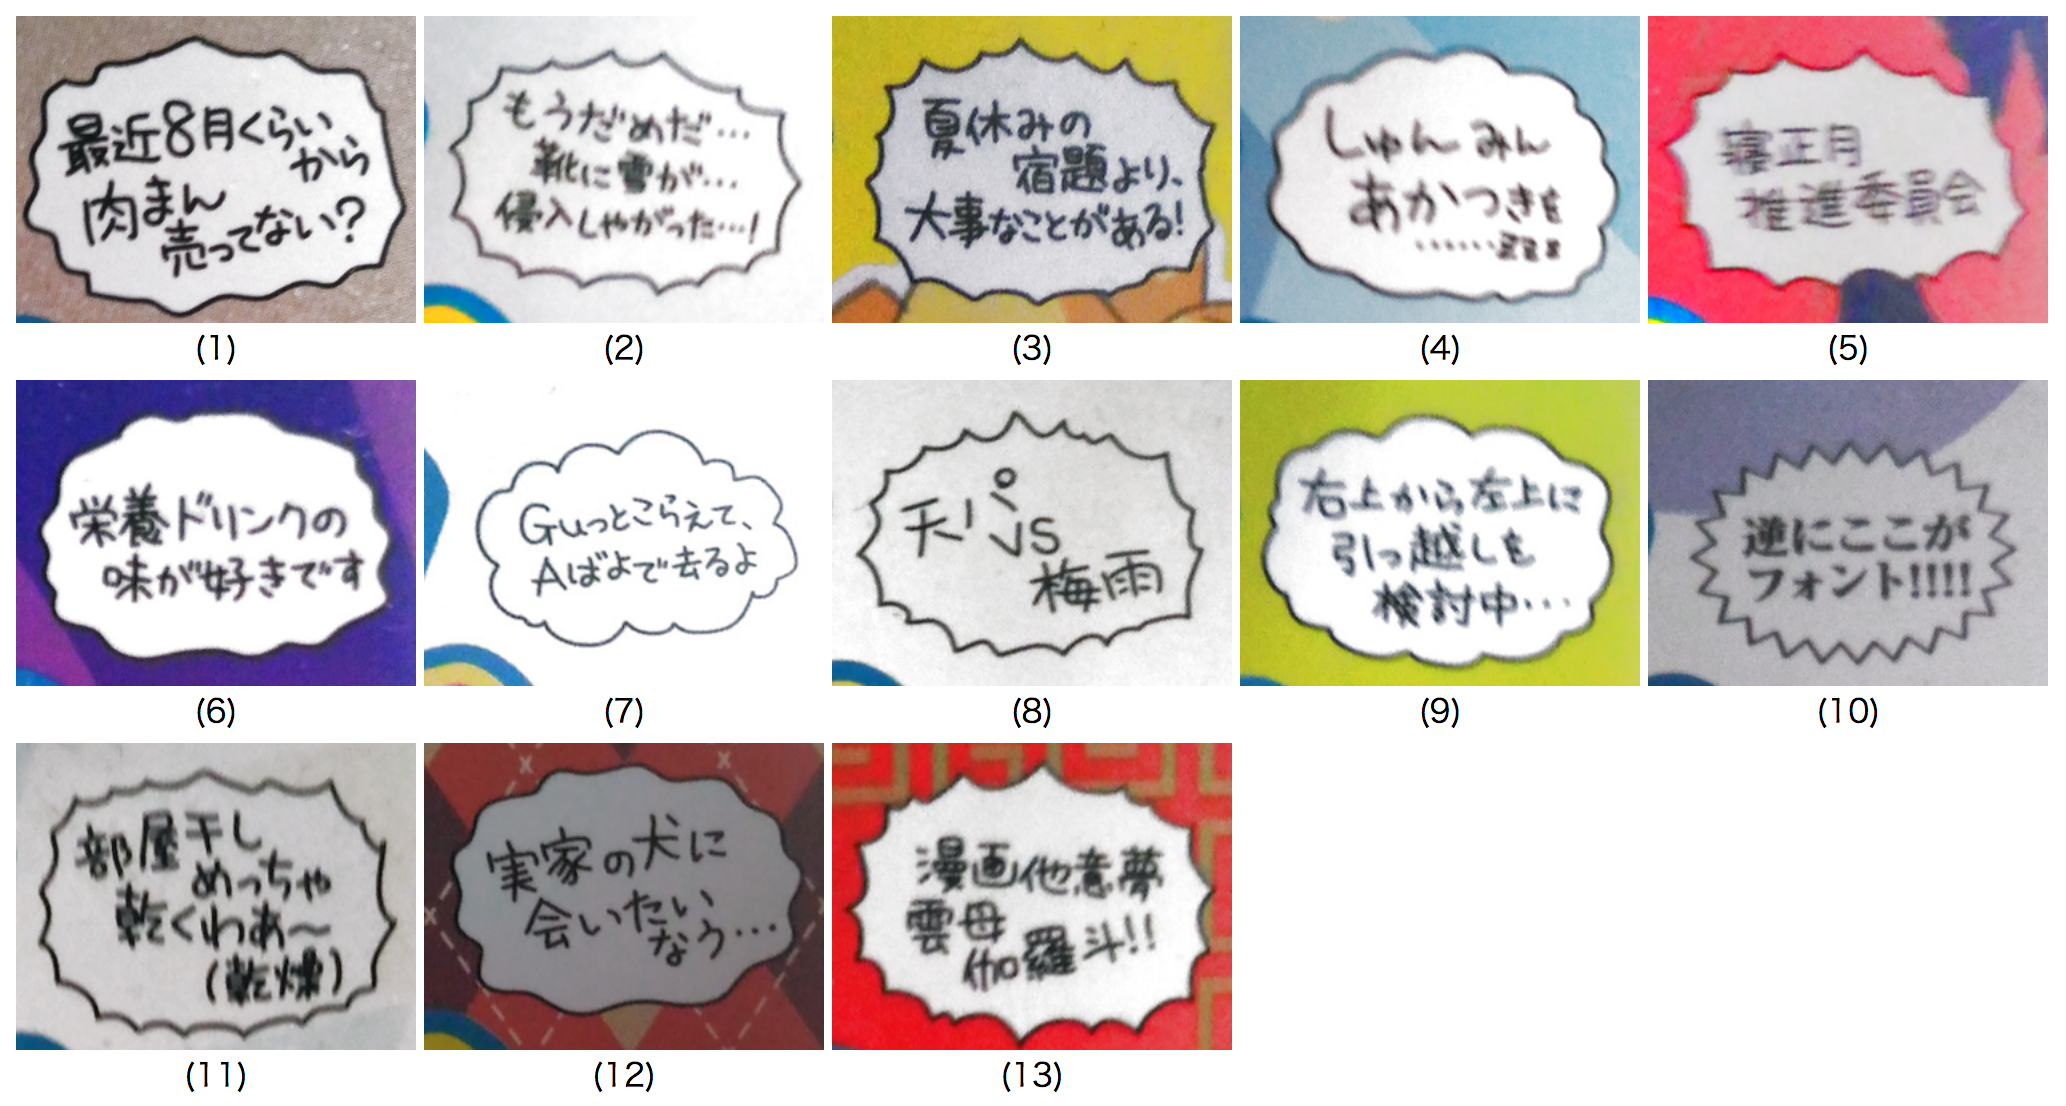 最近8月くらい
から
肉まん
売ってない?
(1)
もうだめだ…
靴に雪が…
侵入しやがった…!
(2)
夏休みの
宿題より、
大事なことがある!
(3)
しゅんみん
あかつきを
……zzz
(4)
寝正月
推進委員会
(5)
栄養ドリンクの
味が好きです
(6)
Guっとこらえて、
Aばよで去るよ
(7)
天パ
vs
梅雨
(8)
右上から左上に
引っ越しも
検討中…
(9)
逆にここが
フォント!!!!
(10)
部屋干し
めっちゃ
乾くわあ〜
(乾燥)
(11)
実家の犬に
会いたい
なう…
(12)
漫画他意夢
雲母
伽羅斗!!
(13)